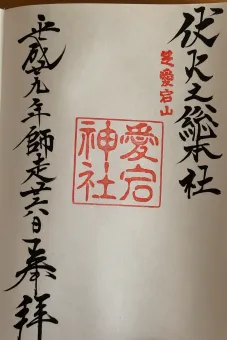 伏火之総本社
芝愛宕山
愛宕神社
平成廿九年師走廿六日奉拝